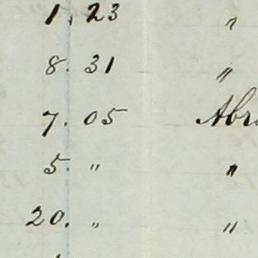 1. 23 "
8. 31 "
7. 05 Abr
5. " "
20. " "